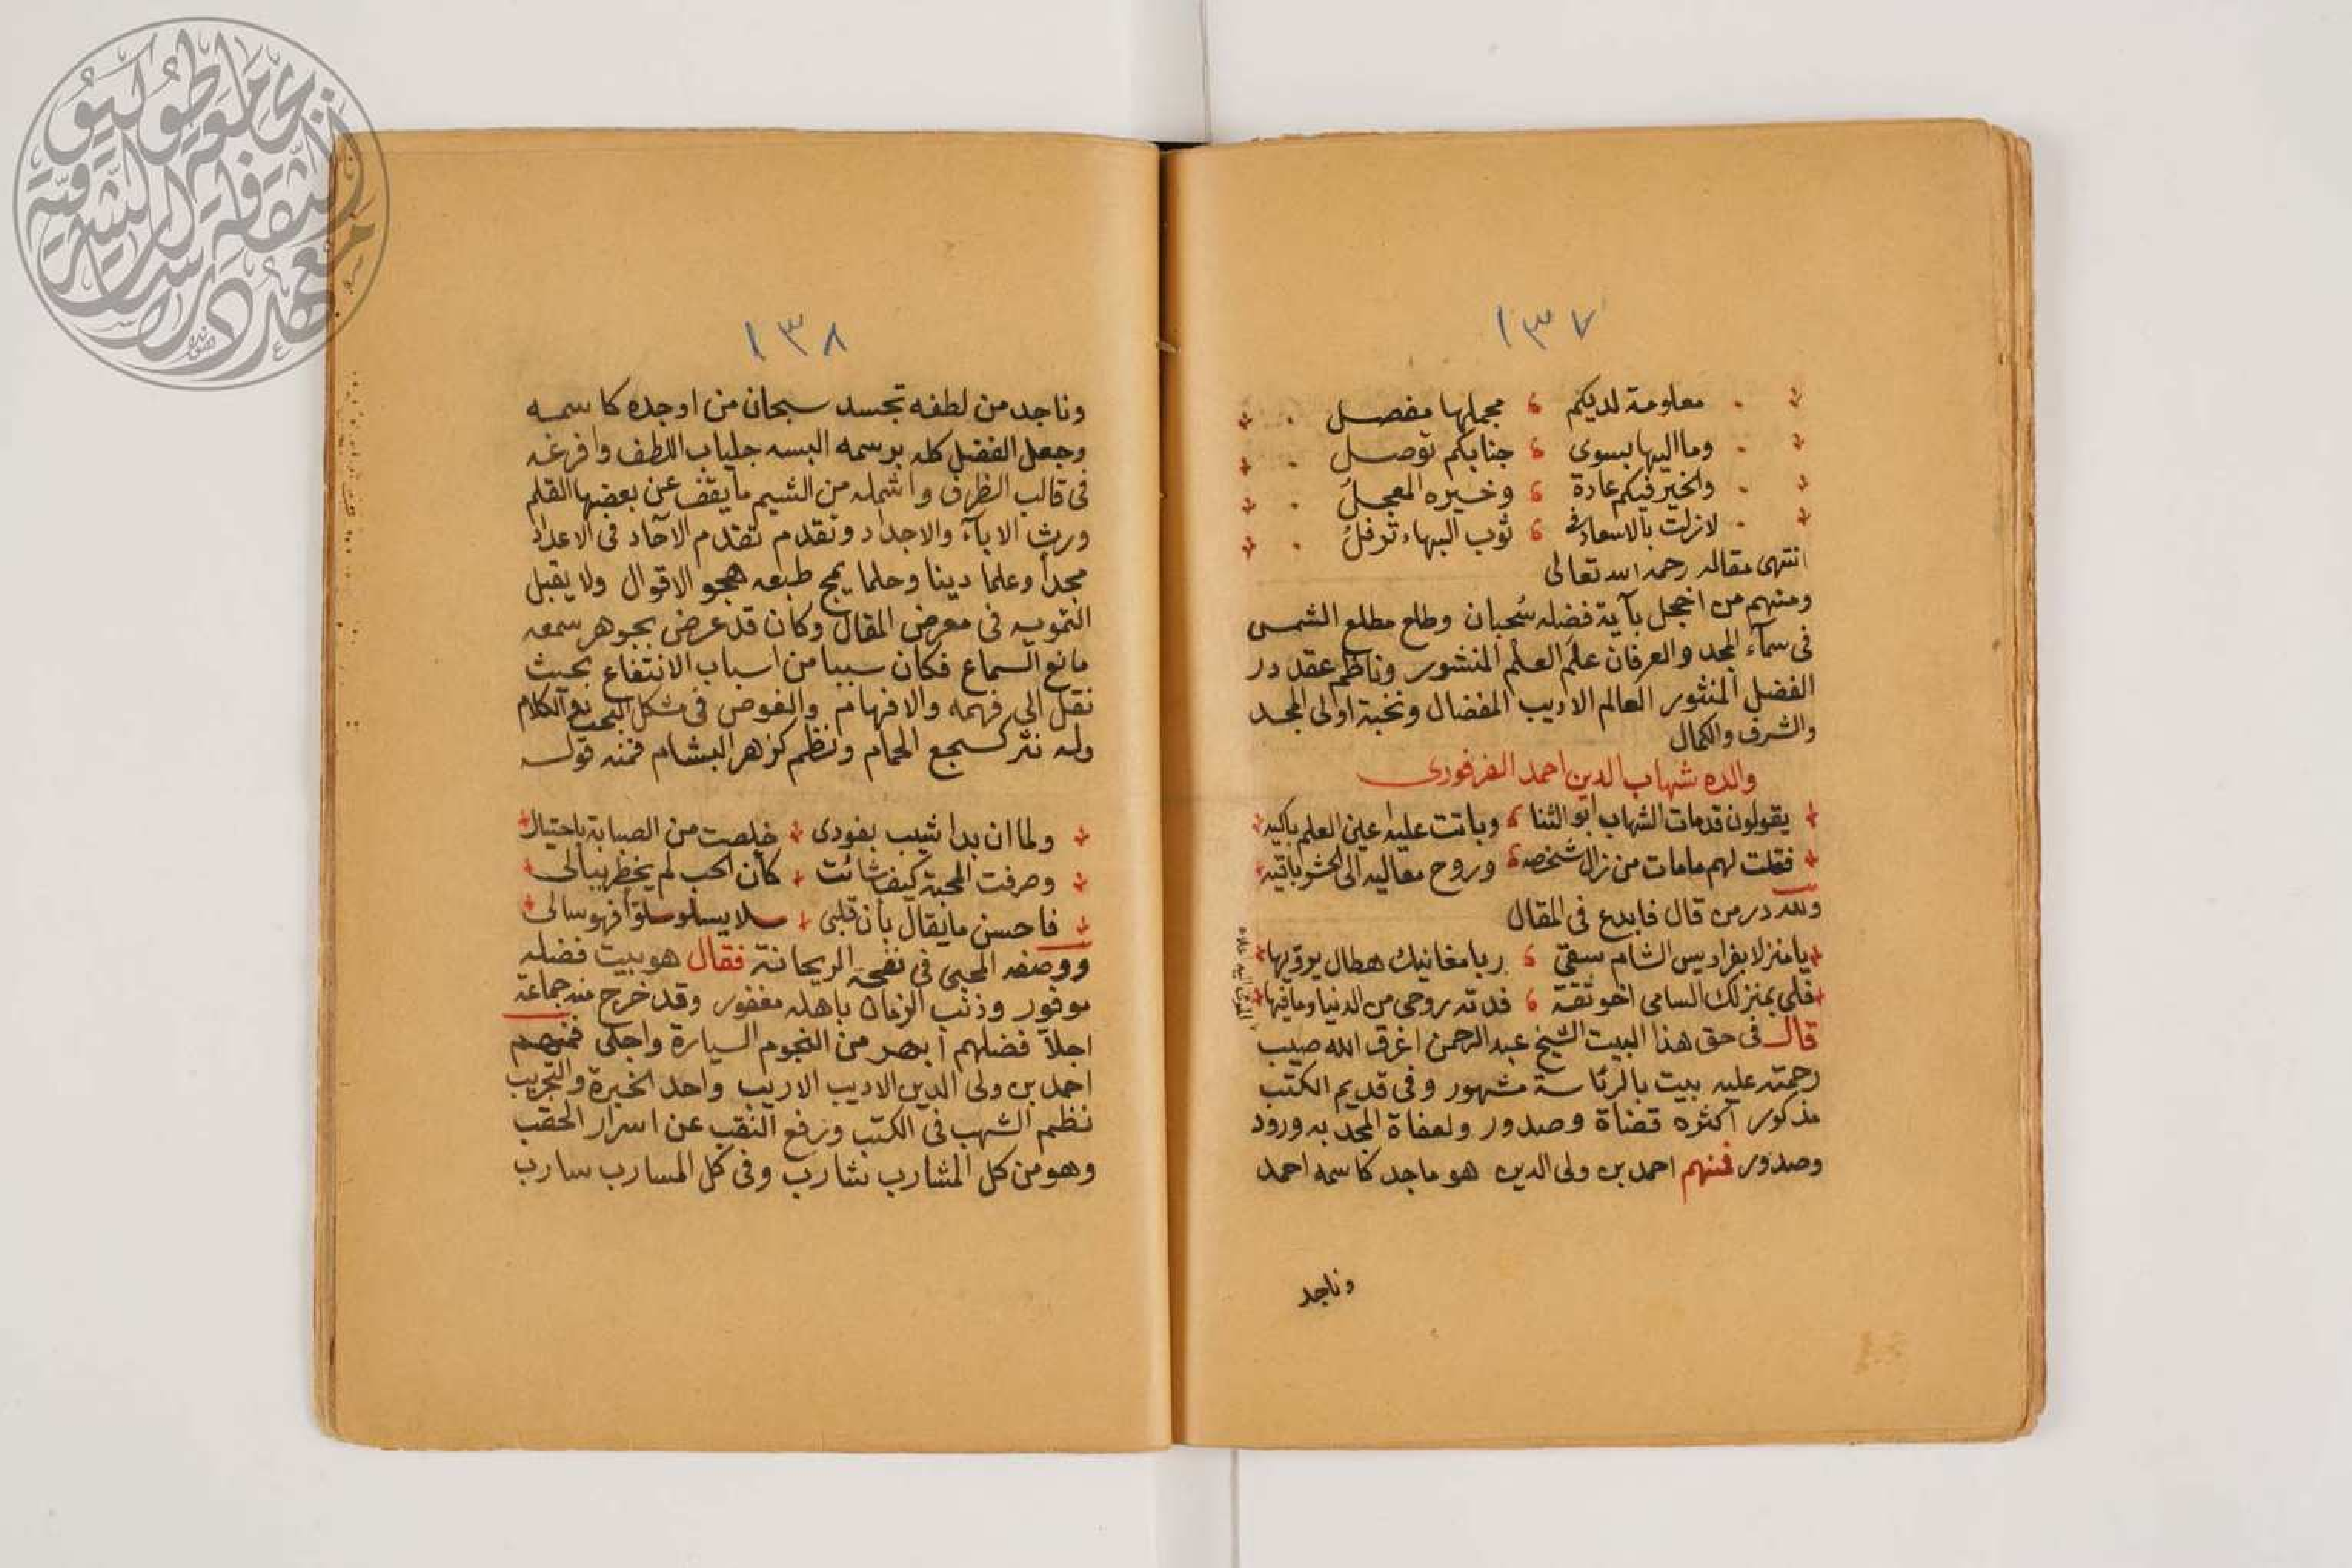 ١٣٧
معلومة لديكم مجملها مفصل
وما اليها بسوى جنابكم توصل
والخير فيكم عادة وخيره المعجل
لازلت بالاسعاد فى ثوب البهاء ترفل
انتهى مقاله رحمه الله تعالى
ومنهم من اخجل بآية فضله سُحبان وطلع مطلع الشمس
فى سمآء المجد والعرفان علَم العلم المنشور وناظم عقد در
الفضل المنثور العالم الاديب المفضال ونخبة اولى المجد
والشرف والكمال
والده شهاب الدين احمد الفرفورى
يقولون قد مات الشهاب ابو الثنا وباتت عليه عين العلم باكيه
فقلت لهم ما مات من زال شخصه وروح معاليه الى الحشر باقيه
ولله در من قال فابدع فى المقال
يا منزلا بفراديس الشام سقى ربا مغانيك هطال يرويها
فلى بمنزلك السامى اخو ثقة فدته روحى من الدنيا وما فيها
قال فى حق هذا البيت الشيخ عبد الرحمن اغرق الله صيب
رحمته عليه بيت بالرئاسة مشهور وفى قديم الكتب
مذكور اكثره قضاة وصدور ولعفاة المجد به ورود
وصدور فمنهم احمد بن ولى الدين هو ماجد كاسمه احمد
وناجد
١٣٨
وناجد من لطفه تجسد سبحان من اوجده كاسمه
وجعل الفضل كله برسمه البسه جلباب اللطف وافرغه
فى قالب الظرف واشمله من الشيم ما يقف عن بعضها القلم
ورث الابآء والاجداد وتقدم تقدم الآحاد فى الاعداد
مجدا وعلما دينا وحلما يمج طبعه هجو الاقوال ولا يقبل
التمويه فى معرض المقال وكان قد عرض بجوهر سمعه
مانع السماع فكان سببا من اسباب الانتفاع بحيث
نقل الى فهمه والافهام والغوص فى مشكل الكلام
وله نثر كسجع الحمام ونظم كزهر البشام فمنه قوله
ولما ان بدا شيب بفودى خلصت من الصبابة باحتيال
وصرفت المحبة كيف شائت كأن الحب لم يخطر ببالى
فاحسن ما يقال بأن قلبى سلا يسلو سلوا فهو سالى
ووصفه المحبى فى نفحة الريحانة فقال هو بيت فضله
موفور وذنب الزمان باهله مغفور وقد خرج منه جماعة
اجلآ فضلهم ابهر من النجوم السيارة واجلى فمنهم
احمد بن ولى الدين الاديب الاريب واحد الخيرة والتجريب
نظم الشهب فى الكتب ورفع النقب عن اسرار الحقب
وهو من كل المشارب شارب وفى كل المسارب سارب